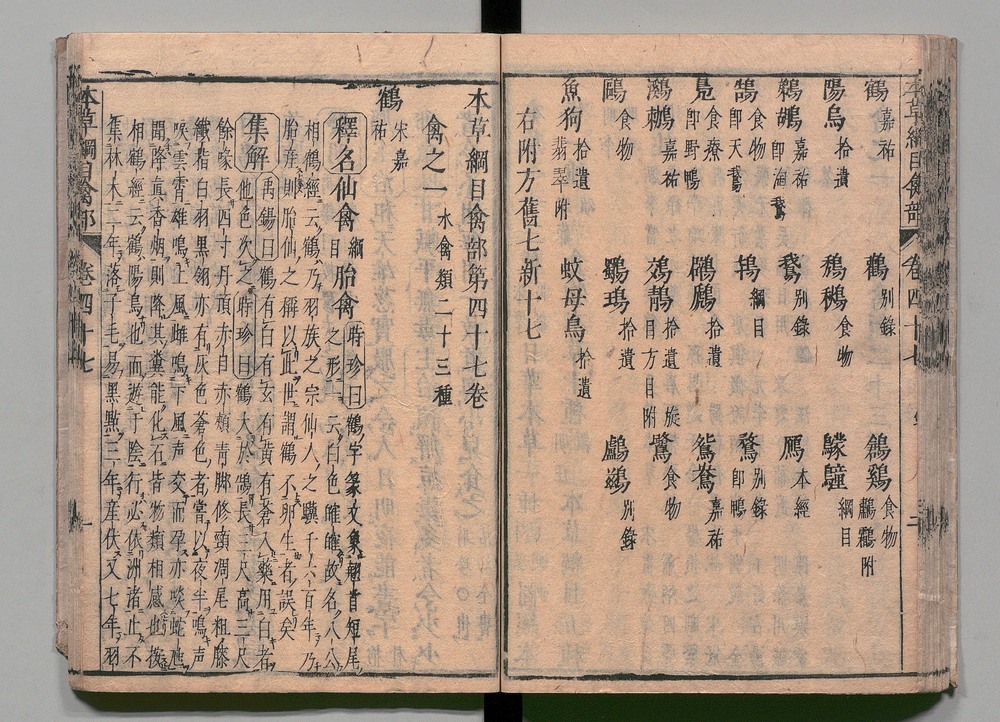 鶴嘉祐　鸛別錄　鶬鷄食物
陽烏拾遺　鵚鶖食物　䴌䴀綱目
鵜鶘嘉祐 即淘鵞　鵞別錄　鴈本經
鵠食物 即天鵞　鴇綱目　鶩別錄 即鴨
鳧食療 即野鴨　鸊鷉拾遺　鴛鴦嘉祐
鸂鷘嘉祐　鵁鶄拾遺　鷺食物
鷗食物　鸀鳿拾遺　鸕鷀別錄
魚狗拾遺 翡翠附　蚊母鳥拾遺
右附方舊七新十七
本草綱目禽部第四十七卷
禽之一 水禽類二十三種
鶴宋嘉祐
釋名仙禽綱目胎禽時珍曰鶴字篆文象翹首短尾
之形一云白色㿥㿥故名八公
相鶴經云鶴乃羽族之宗仙人之驥千六百年乃
胎産則胎仙之稱以此世謂鶴不卵生者誤矣
集解禹錫曰鶴有白有玄有黃有蒼入藥用白者
他色次之時珍曰鶴大於鵠長三尺高三尺
餘喙長四寸丹頂赤目赤頰青脚修頸凋尾粗膝
纖指白羽黑翎亦有灰色蒼色者嘗以夜半鳴声
唳雲霄雄鳴上風雌鳴下風声交而孕亦啖蛇虺
聞降真香烟則降其糞能化石皆物類相感也按
相鶴經云鶴陽鳥也而遊于陰行必依洲渚止不
集林木二年落子毛易黑點三年産伏又七年羽
本草綱目禽部　卷四十七　一